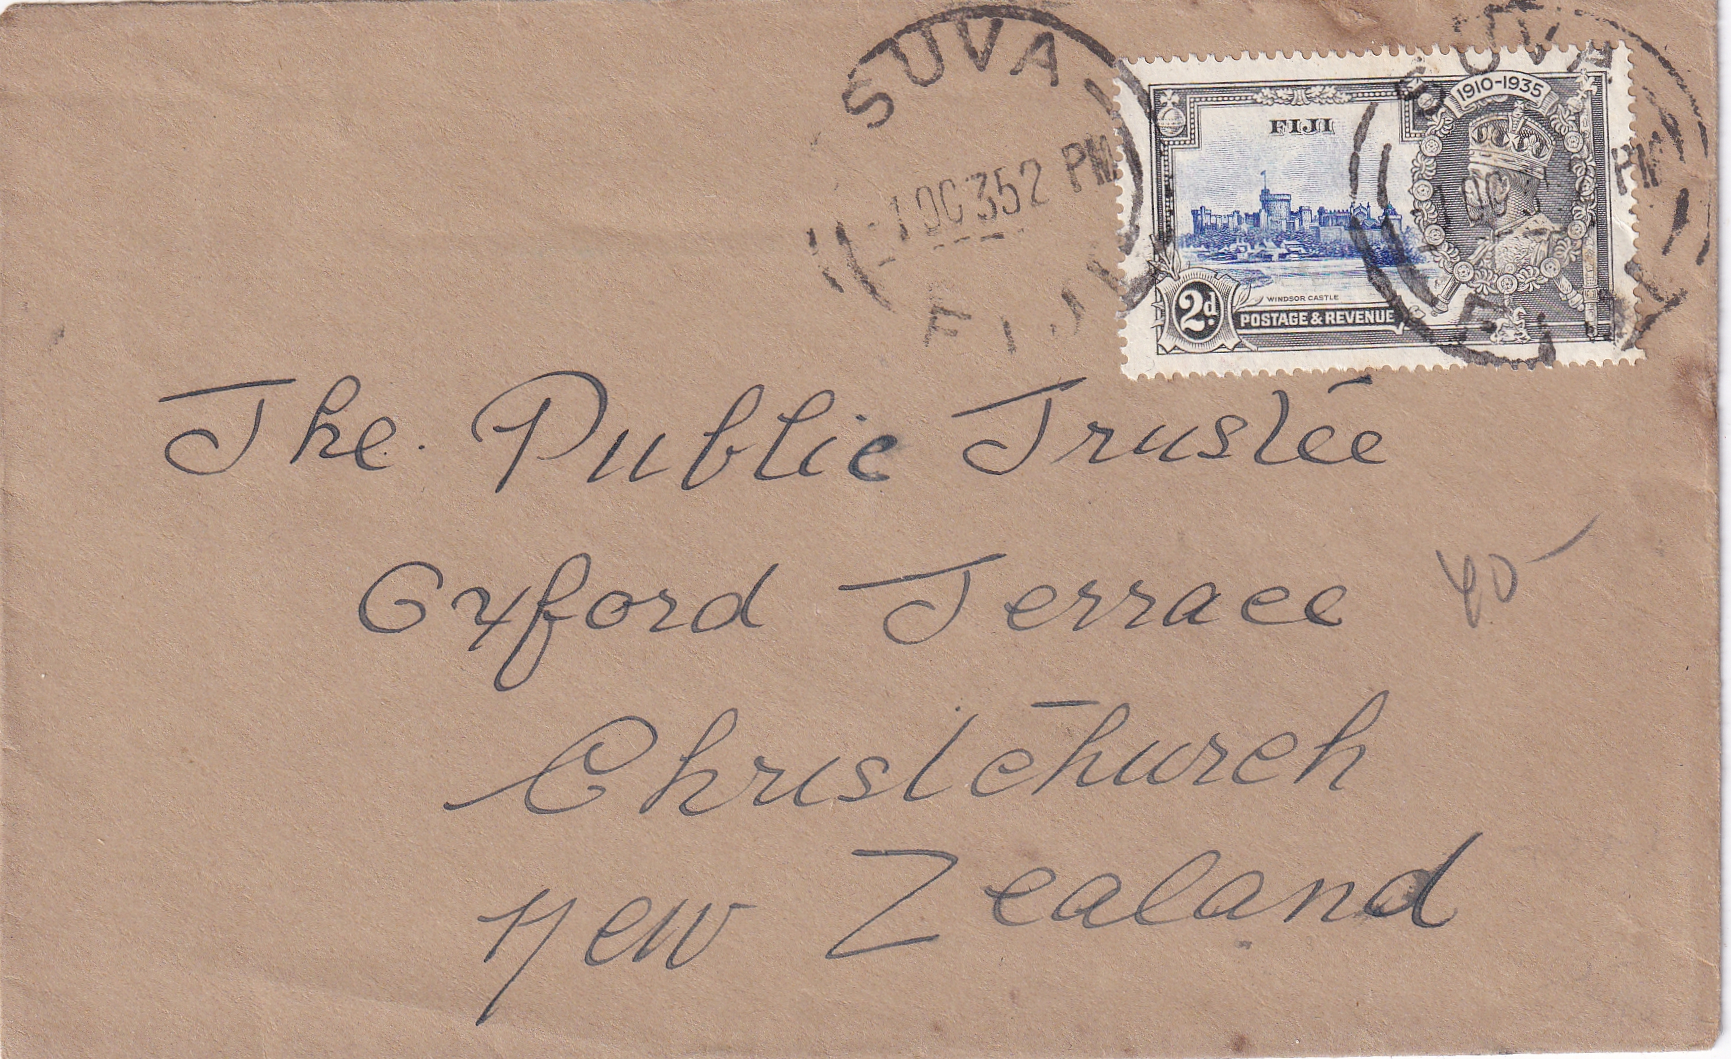 SUVA
-1 OC 35 2 PM
FIJI
SUVA
1 OC 3 PM
FIJI
1910-1935
FIJI
WINDSOR CASTLE
2d.
POSTAGE & REVENUE
The Public Trustee
Oxford Terrace
Christchurch
New Zealand